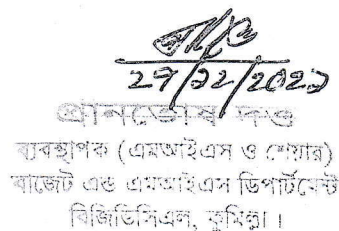 27/12/2021
প্রানতোষ দত্ত
ব্যবস্থাপক (এমআইএস ও শেয়ার)
বাজেট এন্ড এমআইএস ডিপার্টমেন্ট
বিজিডিসিএল, কুমিল্লা।